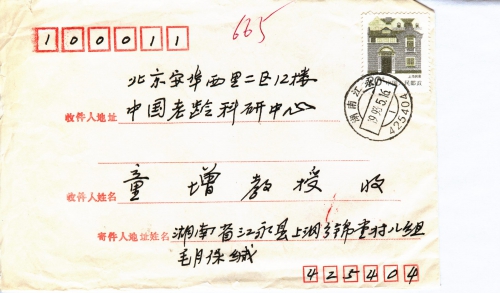 100011
665
北京安西里二区12楼
收件人地址 中国老龄科研中心
收件人姓名 童 增 教 授 收
寄件人地址姓名 湖南省江永县上村组
毛月保缄
425404
上海民居
湖南江永